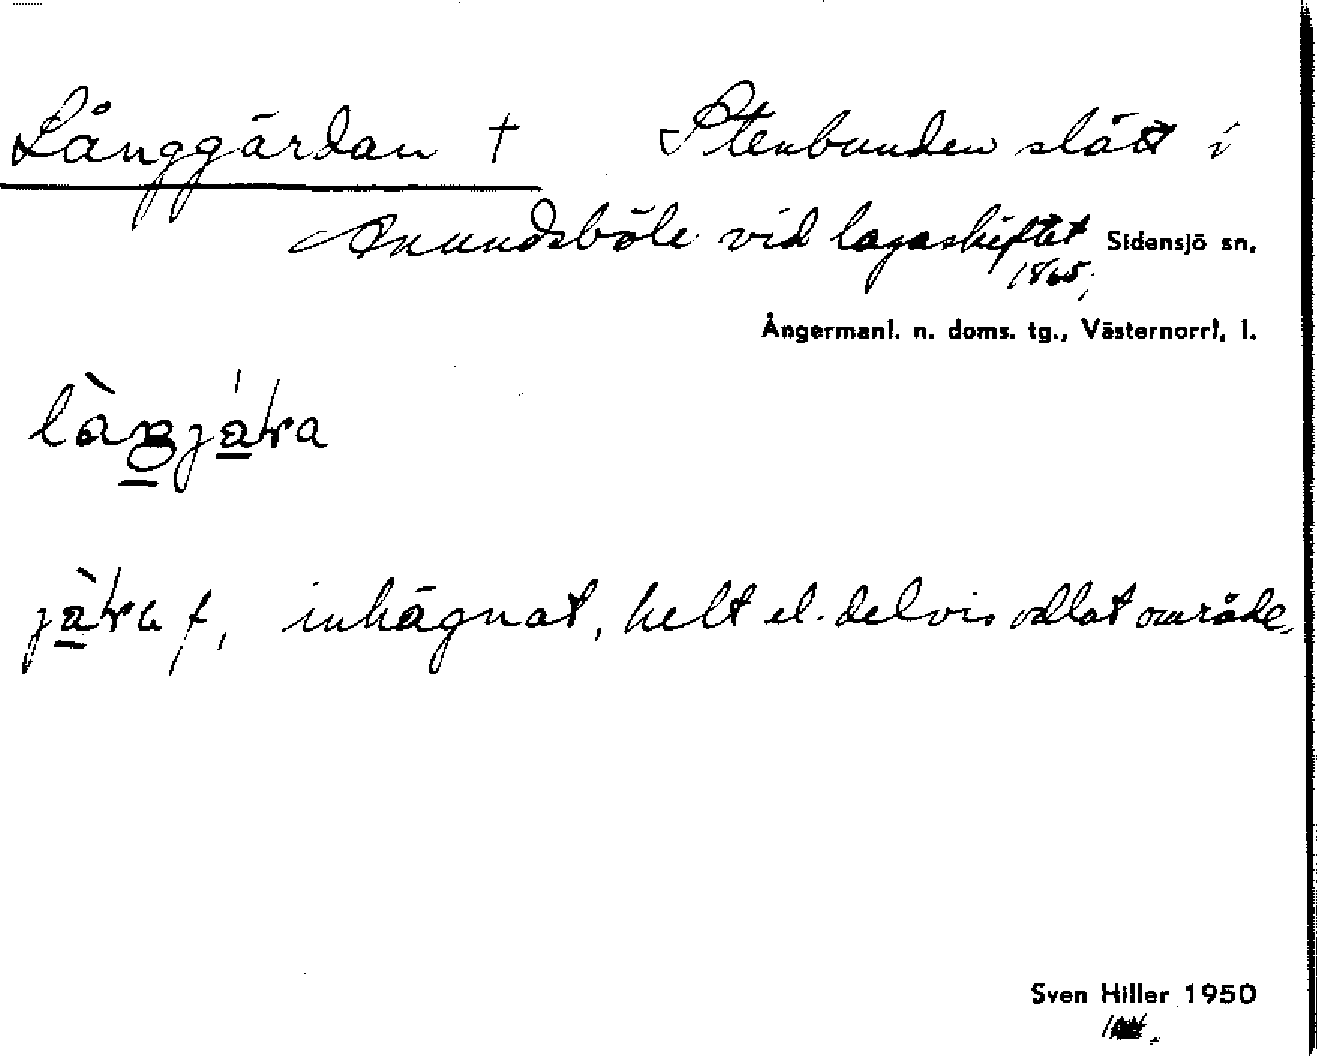 Långgärdan † Stenbunden slått i
Anundsböle vid lagaskiftet Sidensjö sn.
1865,
Ångermanl. n. doms. tg., Västernorrl. l.
f, inhägnat, helt el. delvis odlat område.
Sven Hiller 1950